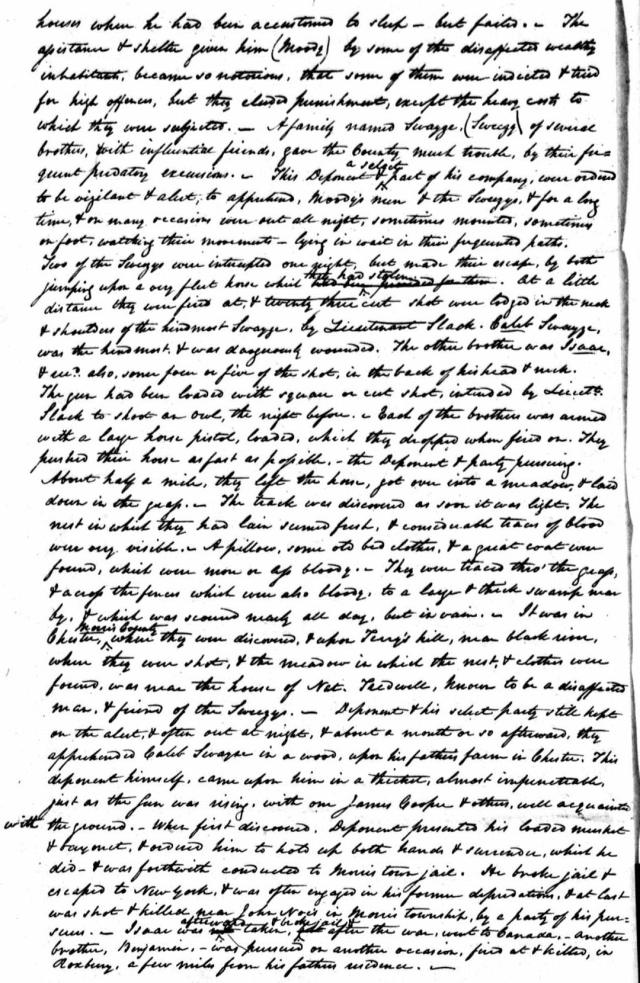 houses where he had been accustomed to sleep – but failed. – The
assistance & shelter given him (Moody) by some of the disaffected wealthy
inhabitants, became so notorious, that some of them were indicted & tried
for high offences, but they eluded punishment, except the heavy costs to
which they were subjected. – A family named Swayze, (Sweezy) of several
brothers, & with influential friends, gave the County much trouble, by their fre-
quent predatory excursions. – This Deponent & a select part of his company, were ordered
to be vigilant & alert, to apprehend, Moody's men & the Sweezys, & for a long
time, & on many occasions were out all night, sometimes mounted, sometimes
on foot, watching their movements – lying in wait in their frequented paths.
Two of the Sweezys were intercepted one night, but made their escape, by both
jumping upon a very fleet horse which they had stolen. At a little
distance they were fired at, & twenty three cut shot were lodged in the neck
& shoulders of the hindmost Swayze, by Lieutenant Slack. Caleb Swayze,
was the hindmost & was dangerously wounded. The other brother was Isaac,
& recd. also, some four or five of the shot, in the back of his head & neck.
The gun had been loaded with square or cut shot, intended by Lieut.
Slack to shoot an owl, the night before. – Each of the brothers was armed
with a large horse pistol, loaded, which they dropped when fired on. They
pushed their horse as fast as possible, – the Deponent & party pursuing.
About half a mile, they left the horse, got over into a meadow, & laid
down in the grass. – The track was discovered as soon it was light. The
nest in which they had lain seemed fresh, & considerable traces of blood
were very visible. – A pillow, some old bed clothes, & a great coat were
found, which were more or less bloody. – They were traced thro' the grass,
& across the fences which were also bloody, to a large & thick swamp near
by, & which was scoured nearly all day, but in vain. – It was in
Chester, Morris County where they were discovered, & upon Terry's hill, near black river,
where they were shot, & the meadow in which the nest, & clothes were
found, was near the house of Nat. Treedwell, known to be a disaffected
man, & friend of the Sweezys. – Deponent & his select party still kept
on the alert, & often out at night, & about a month or so afterward, they
apprehended Caleb Swayze in a wood, upon his fathers farm in Chester. This
deponent himself, came upon him in a thicket, almost impenetrable,
just as the Sun was rising, with one James Cooper & others, well acquainted
with the ground. – When first discovered, Deponent presented his loaded musket
& bayonet, & ordered him to hold up both hands & surrender, which he
did – & was forthwith conducted to Morris town jail. He broke jail &
escaped to New York, & was often engaged in his former depredations, & at last
was shot & killed, near John in Morris township, by a party of his pur-
suers. – Isaac was afterward taken, & broke jail & after the war, went to Canada. – another
brother, Benjamin, – was pursued on another occasion, fired at & killed, in
Roxbury, a few miles from his fathers residence. –